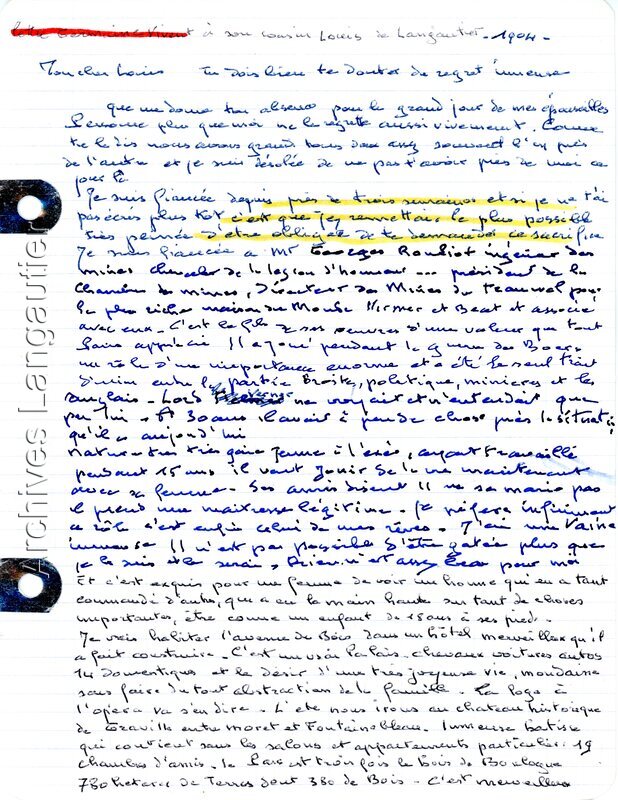 à son cousin Louis de Langautier - 1904 -
Mon cher Louis Tu dois bien te douter du regret immense
que me donne ton absence pour le grand jour de mes épousailles
Personne plus que moi ne le regrette aussi vivement. Comme
tu le dis nous avons grandi tous deux assez souvent l'un près
de l'autre et je suis désolée de ne pas t'avoir près de moi ce
jour là
Je suis fiancée depuis près de trois semaines et si je ne t'ai
pas écris plus tôt c'est que j'ey remettais le plus possible
très peinée d'être obligée de te demander ce sacrifice
Je suis fiancée a Mr Georges Rouliot ingénieur des
mines chevalier de la légion d'honneur ... président de la
Chambre des mines, Directeur des Mines du Transwal pour
la plus riche maison du Monde Wirmer et Beat et associé
avec eux. C'est le fils de ses oeuvres d'une valeur que tout
Paris apprécie Il a joué pendant la guerre des Boers
un rôle d'une importance énorme et a été le seul trait
d'union entre la partie Boers, politique, minières et les
anglais - Lord ne voyait et n'entendait que
par lui - A 30 ans il avait à peu de chose près la situation
qu'il a aujourd'hui
Nature très très gaie jeune à l'excès, ayant travaillé
pendant 15 ans il veut jouir de la vie maintenant
avec sa femme. Ses amis disent Il ne se marie pas
il prend une maitresse légitime. Je préfère infiniment
ce rôle c'est enfin celui de mes rêves. J'ai une Vaine
immense Il n'est pas possible d'être gatée plus que
je le suis et le serai, rien n'est assez beau pour moi
Et c'est exquis pour une femme de voir un homme qui en a tant
commandé d'autres, qui a eu la main haute sur tant de choses
importantes, être comme un enfant de 15 ans à ses pieds.
Je vais habiter l'avenue du Bois dans un hôtel merveilleux qu'il
a fait construire. C'est un vrai Palais - chevaux voitures autos
14 domestiques et le désir d'une très joyeuse vie, mondaine
sans faire du tout abstraction de la famille. La loge à
l'opéra va s'en dire. L'été nous irons au chateau historique
de Graville entre Moret et Fontainebleau. Immense batisse
qui contient sans les salons et appartements particuliers 19
chambres d'amis. le Parc est trois fois le Bois de Boulogne
780 hectares de Terres dont 380 de Bois - C'est merveilleux
Archives Langautier